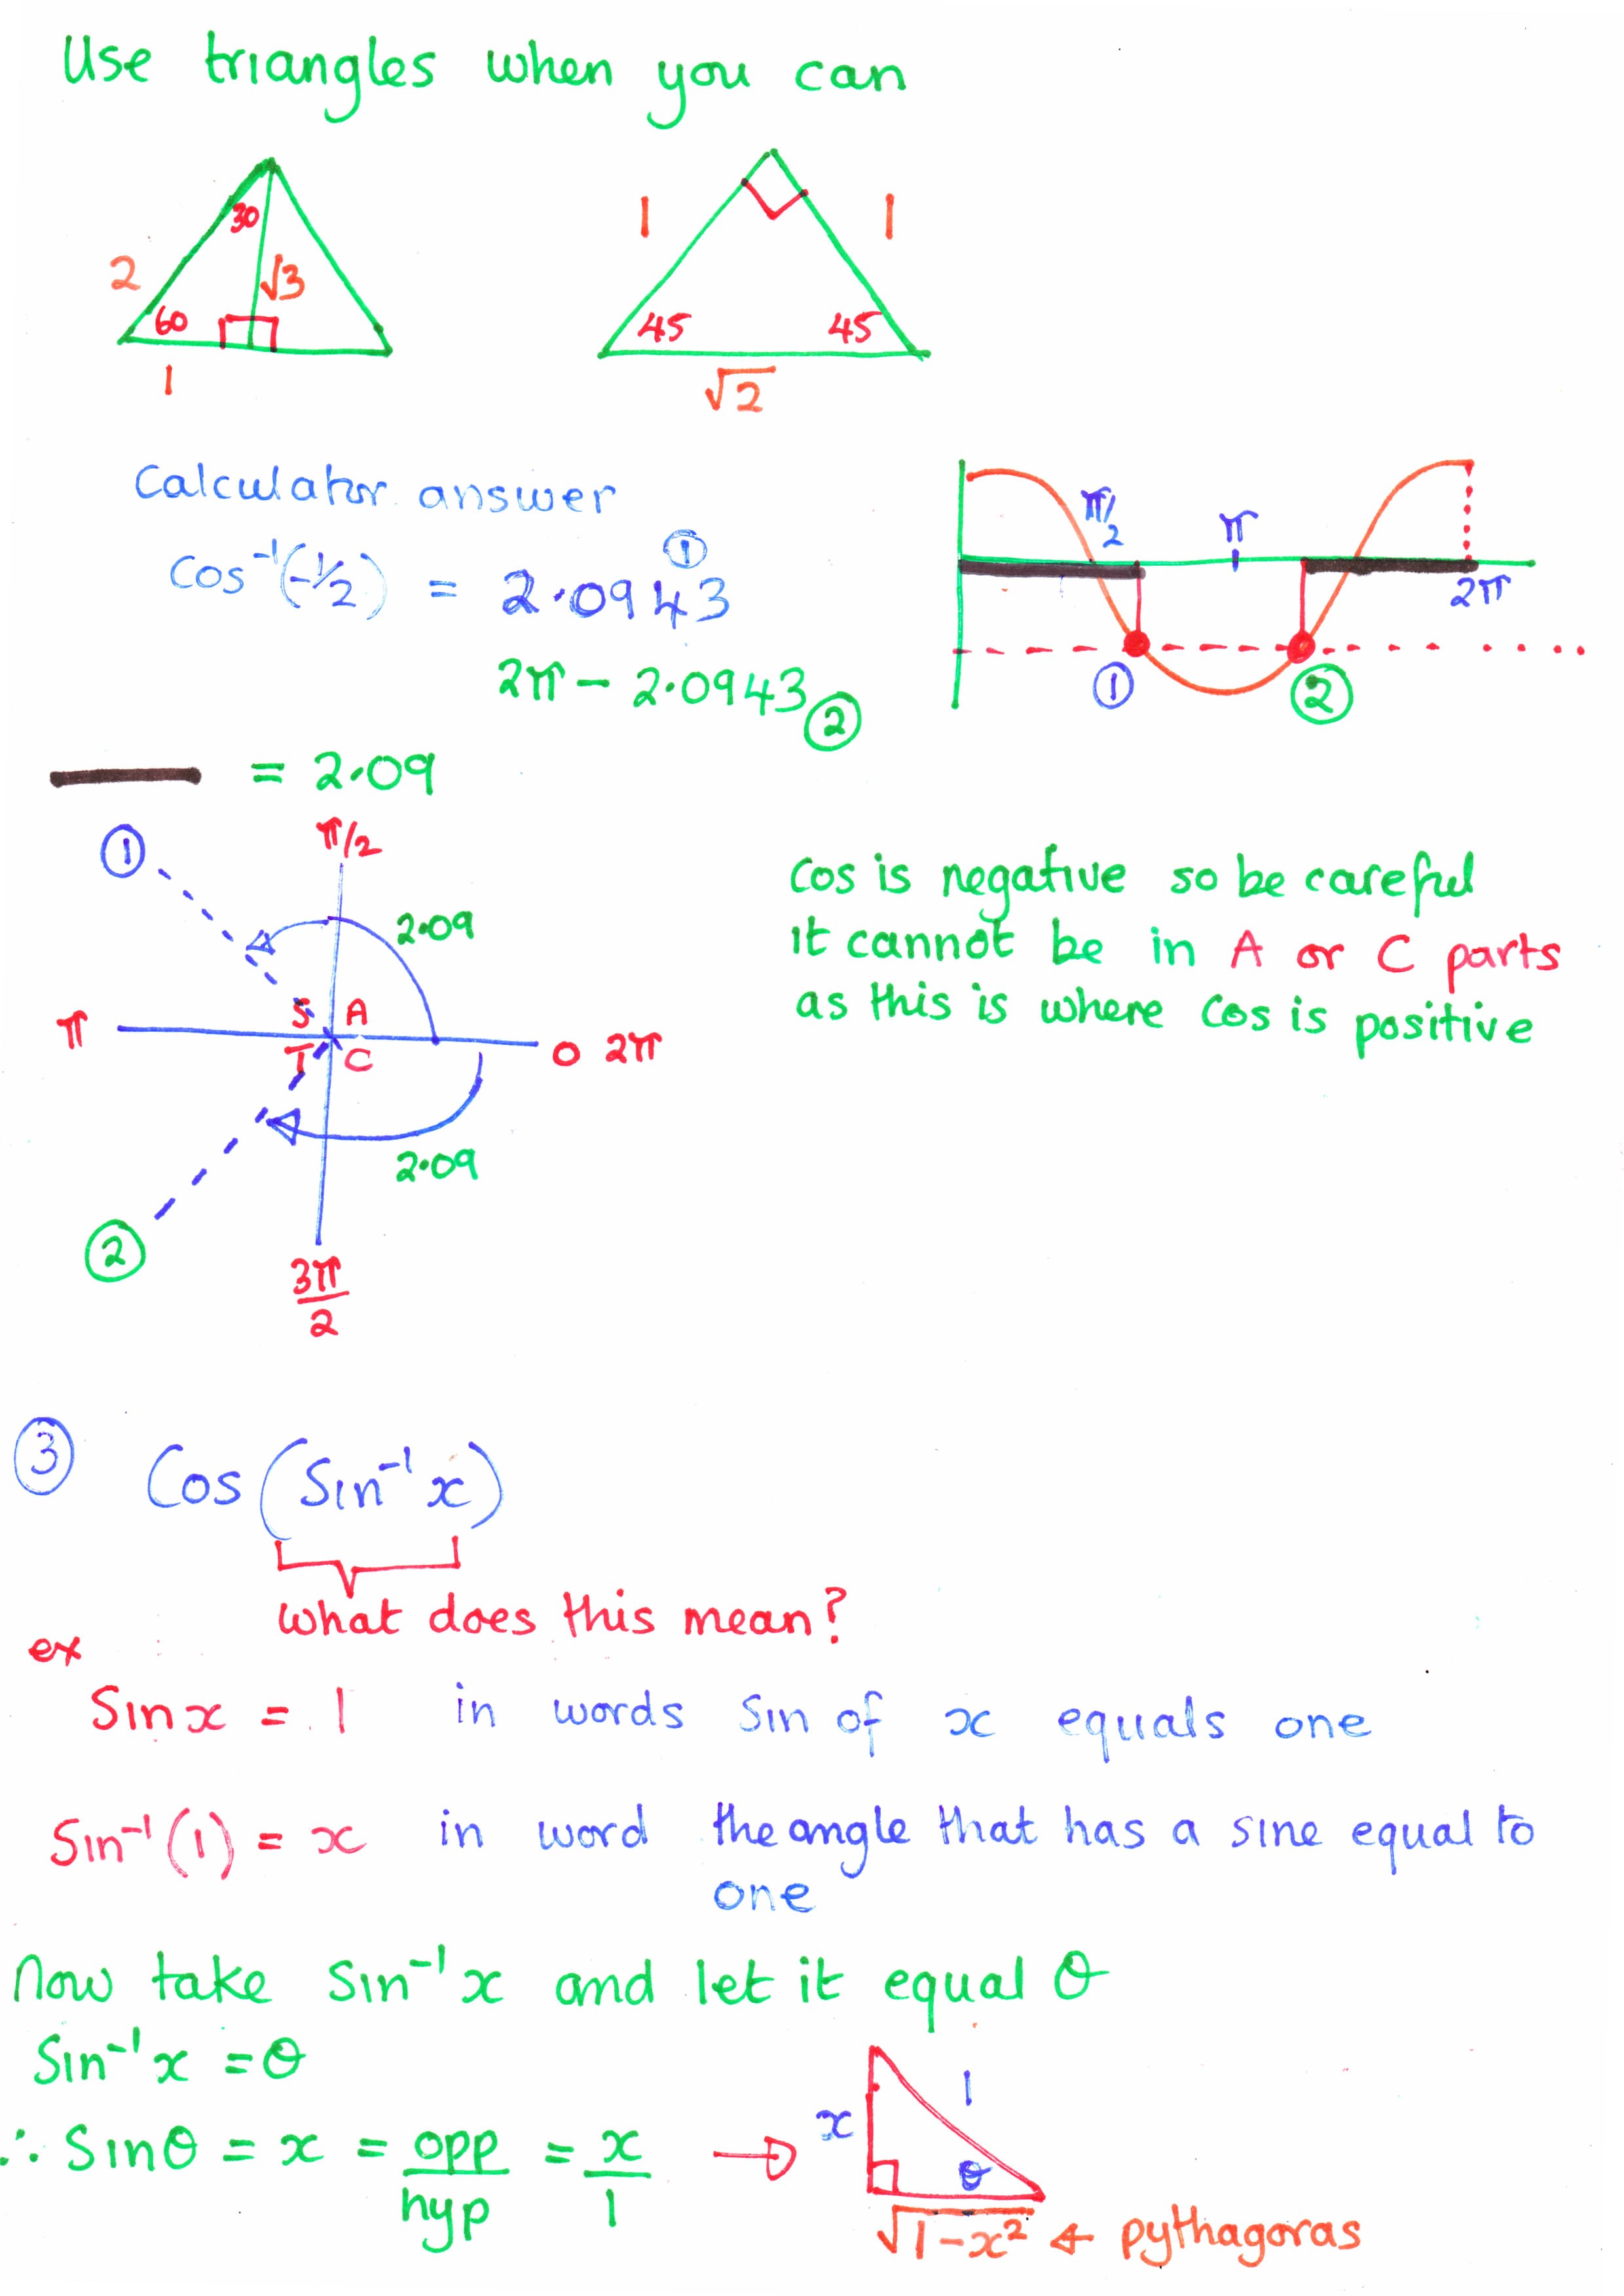 Use triangles when you can
30
2
√3
60
1
1
1
45
45
√2
Calculator answer
Cos⁻¹(-½) = 2.0943 ①
2π - 2.0943 ②
= 2.09
π/2
π
2π
①
②
①
π/2
2.09
S A
π
T C
0 2π
2.09
②
3π/2
Cos is negative so be careful
it cannot be in A or C parts
as this is where Cos is positive
③ Cos(Sin⁻¹x)
What does this mean?
ex
Sinx = 1 in words Sin of x equals one
Sin⁻¹(1) = x in word the angle that has a sine equal to
one
Now take Sin⁻¹x and let it equal θ
Sin⁻¹x = θ
∴ Sinθ = x = opp/hyp = x/1 →
x
1
θ
√1-x² ← pythagoras